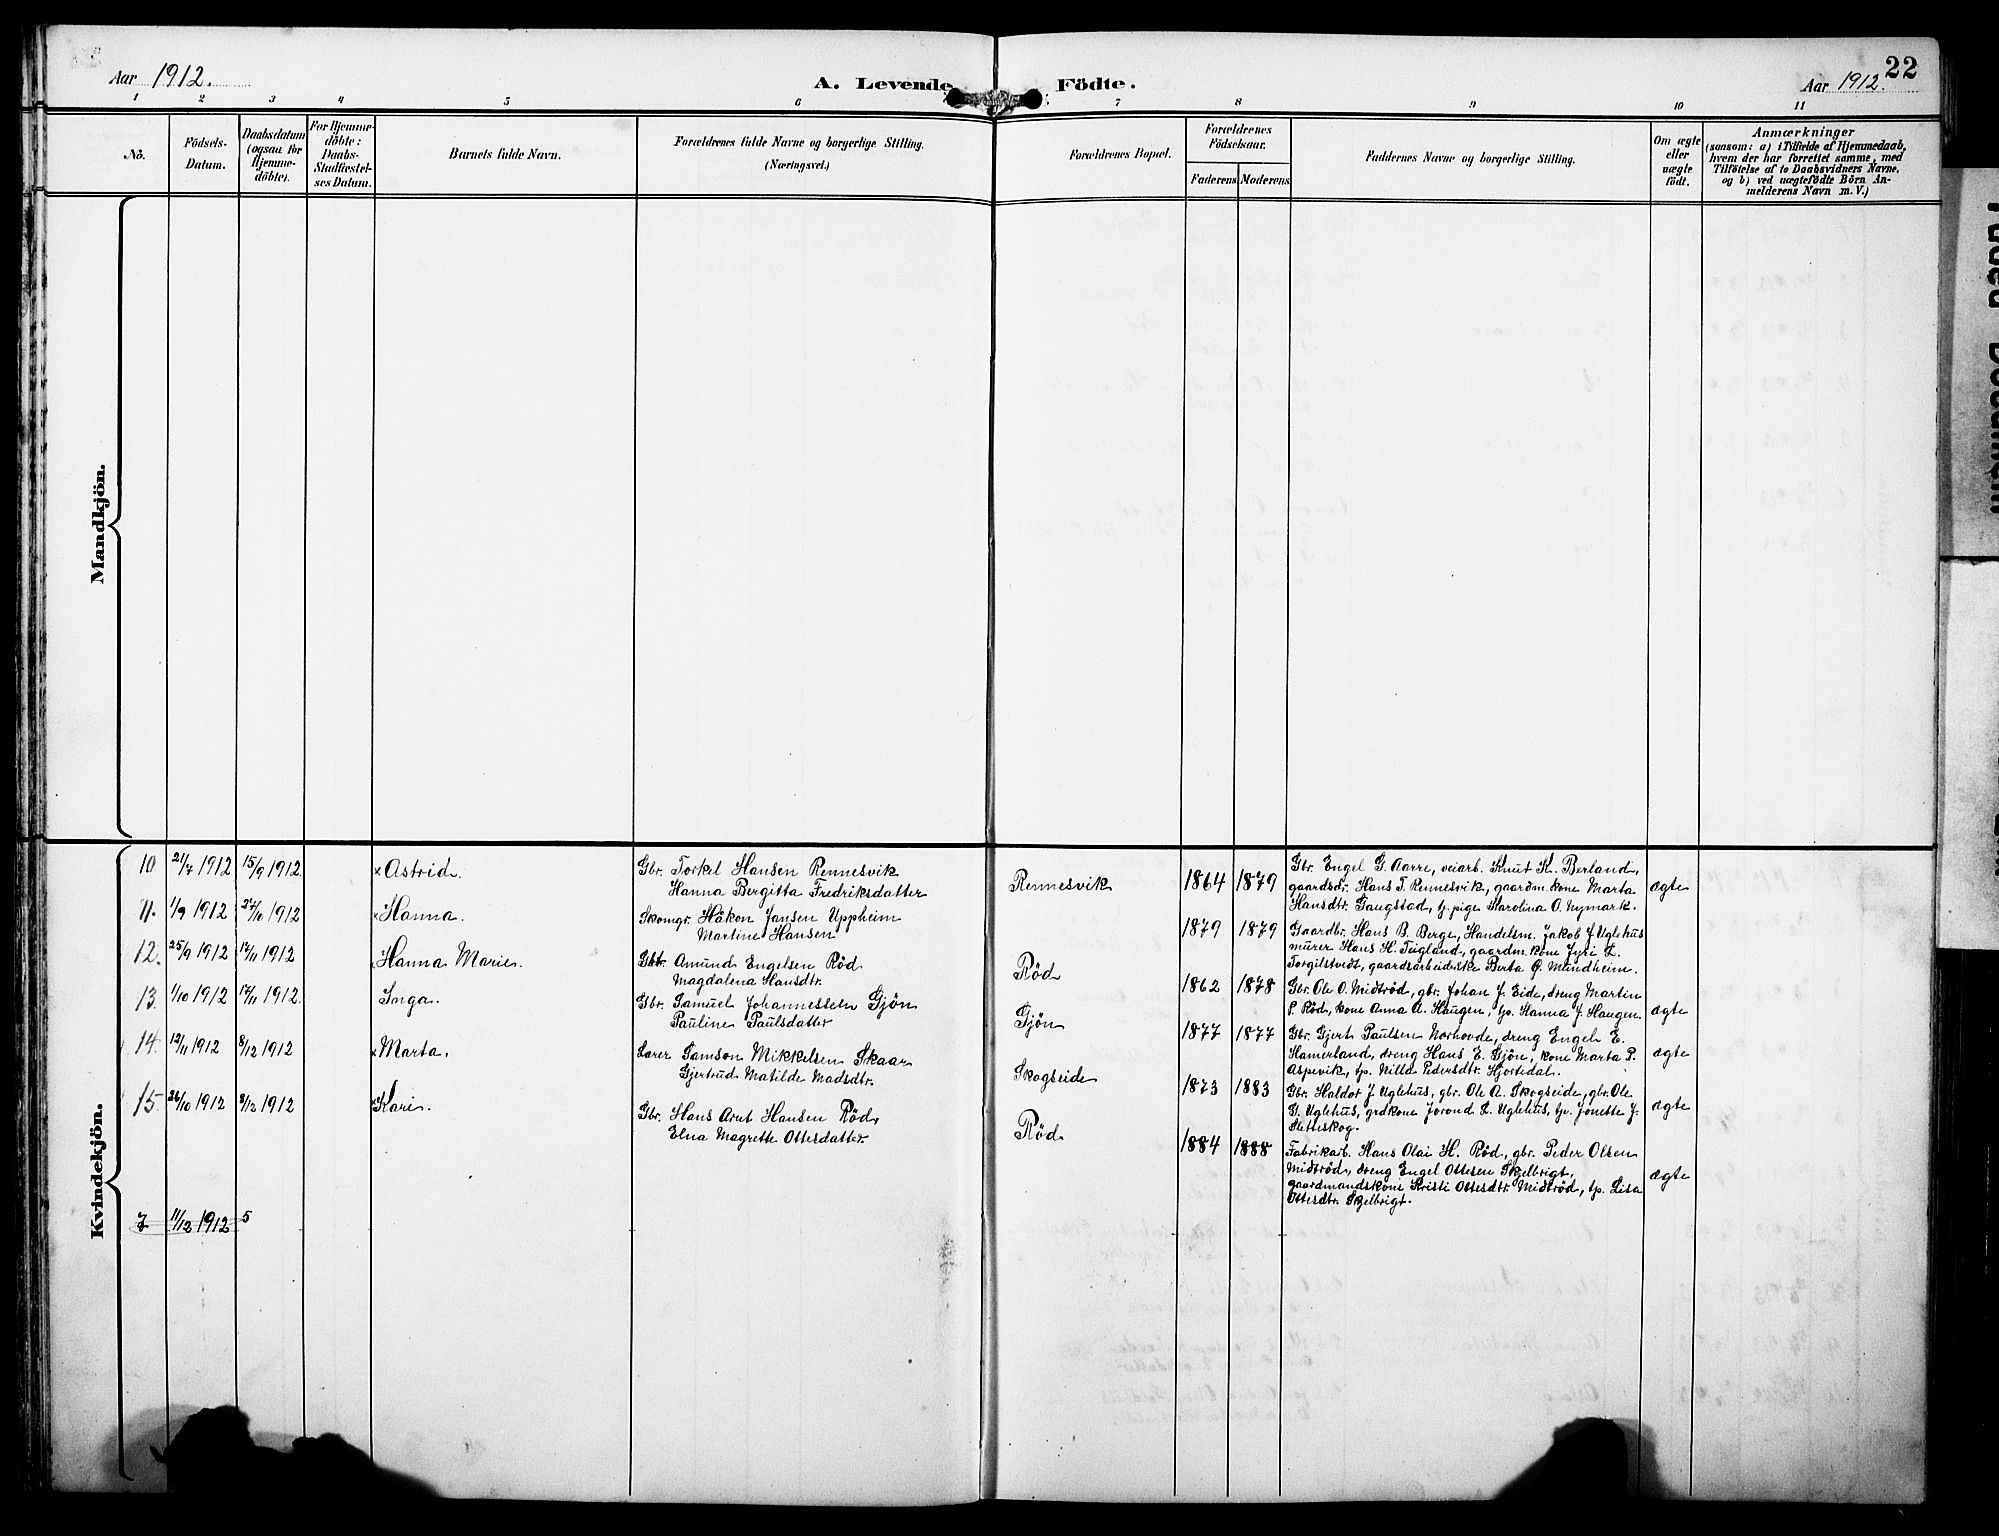 Aar 1912.
A. Levende Födte.
22
Aar 1912.
1 2 3 4 5 6 7 8 9 10 11
No.
Födsels-
Datum.
Daabsdatum
(ogsaa for
Hjemme-
döbte).
For Hjemme-
döbte:
Daabs-
Stadfæstel-
ses Datum.
Barnets fulde Navn.
Forældrenes fulde Navne og borgerlige Stilling.
(Næringsvei.)
Forældrenes Bopæl.
Forældrenes
Födselsaar.
Faderens Moderens
Faddernes Navne og borgerlige Stilling.
Om ægte
eller
uægte
födt.
Anmærkninger
(saasom: a) i Tilfælde af Hjemmedaab,
hvem der har forrettet samme, med
Tilföielse af to Daabsvidners Navne.
og b) ved uægtefödte Börn An-
melderens Navn m. V.)
Mandkjön.
Kvindekjön.
10 21/7 1912 15/9 1912 × Astrid.
Gbr. Torkel Hansen Rennesvik
Hanna Bergitta Fredriksdatter
Rennesvik
1864 1879
Gbr. Engel G. Aarre, veiarb. Knut K. Berland,
gaardsdr. Hans T. Rennesvik, gaardm. kone Marta
Hansdtr. Gaugstad, tj. pige Karolina O. Nymark.
ægte
11. 1/9 1912 27/10 1912 × Hanna.
Skomgr. Håkon Jansen Uppheim
Martine Hansen
1879 1879
Gaardbr. Hans B. Berge, Handelsm. Jakob J. Uglehus
murer Hans H. Teigland, gaardm. kone Jyri L.
Torgilstvedt, gaardsarbeiderske Berta G. Mundheim.
12. 25/9 1912 17/11 1912 × Hanna Marie.
Gbr. Amund Engelsen Röd
Magdalena Hansdtr.
Röd
1862 1878
Gbr. Ole O. Midtröd, gbr. Johan J. Eide, dreng Martin
P. Röd, kone Anna A. Haugen, tp. Hanna J. Haugen.
ægte
13. 1/10 1912 17/11 1912. Inga.
Gbr. Samuel Johannessen Gjön
Pauline Paulsdatter
Gjön
1877 1877
Gbr. Gjert Paulsen Norhovde, dreng Engel E.
Hamerland, dreng Hans E. Gjön, kone Marta P.
Aspevik, tp. Nilla Pedersdtr. Hjortedal.
ægte
14. 12/11 1912 8/12 1912 × Marta.
Lærer Samson Mikkelsen Skaar
Gjertrud Matilde Madsdtr.
Skogseide
1873 1883
Gbr. Haldor J. Uglehus, gbr. Ole A. Skogseide, gbr. Ole
G. Uglehus, grdkone Jorond L. Uglehus, tp. Jonette J.
Sletteskog.
ægte
15. 26/10 1912 8/12 1912 × Kari.
Gbr. Hans Arnt Hansen Röd,
Elna Magrethe Ottesdatter
Röd
1884 1888
Fabrikarb. Hans Olai H. Röd, gbr. Peder Olsen
Midtröd, dreng Engel Ottesen Skjelbrigt,
gaardmandskone Kristi Ottesdtr. Midtröd, tp. Lisa
Ottesdtr. Skjelbrigt.
ægte
7 11/12 1912 5